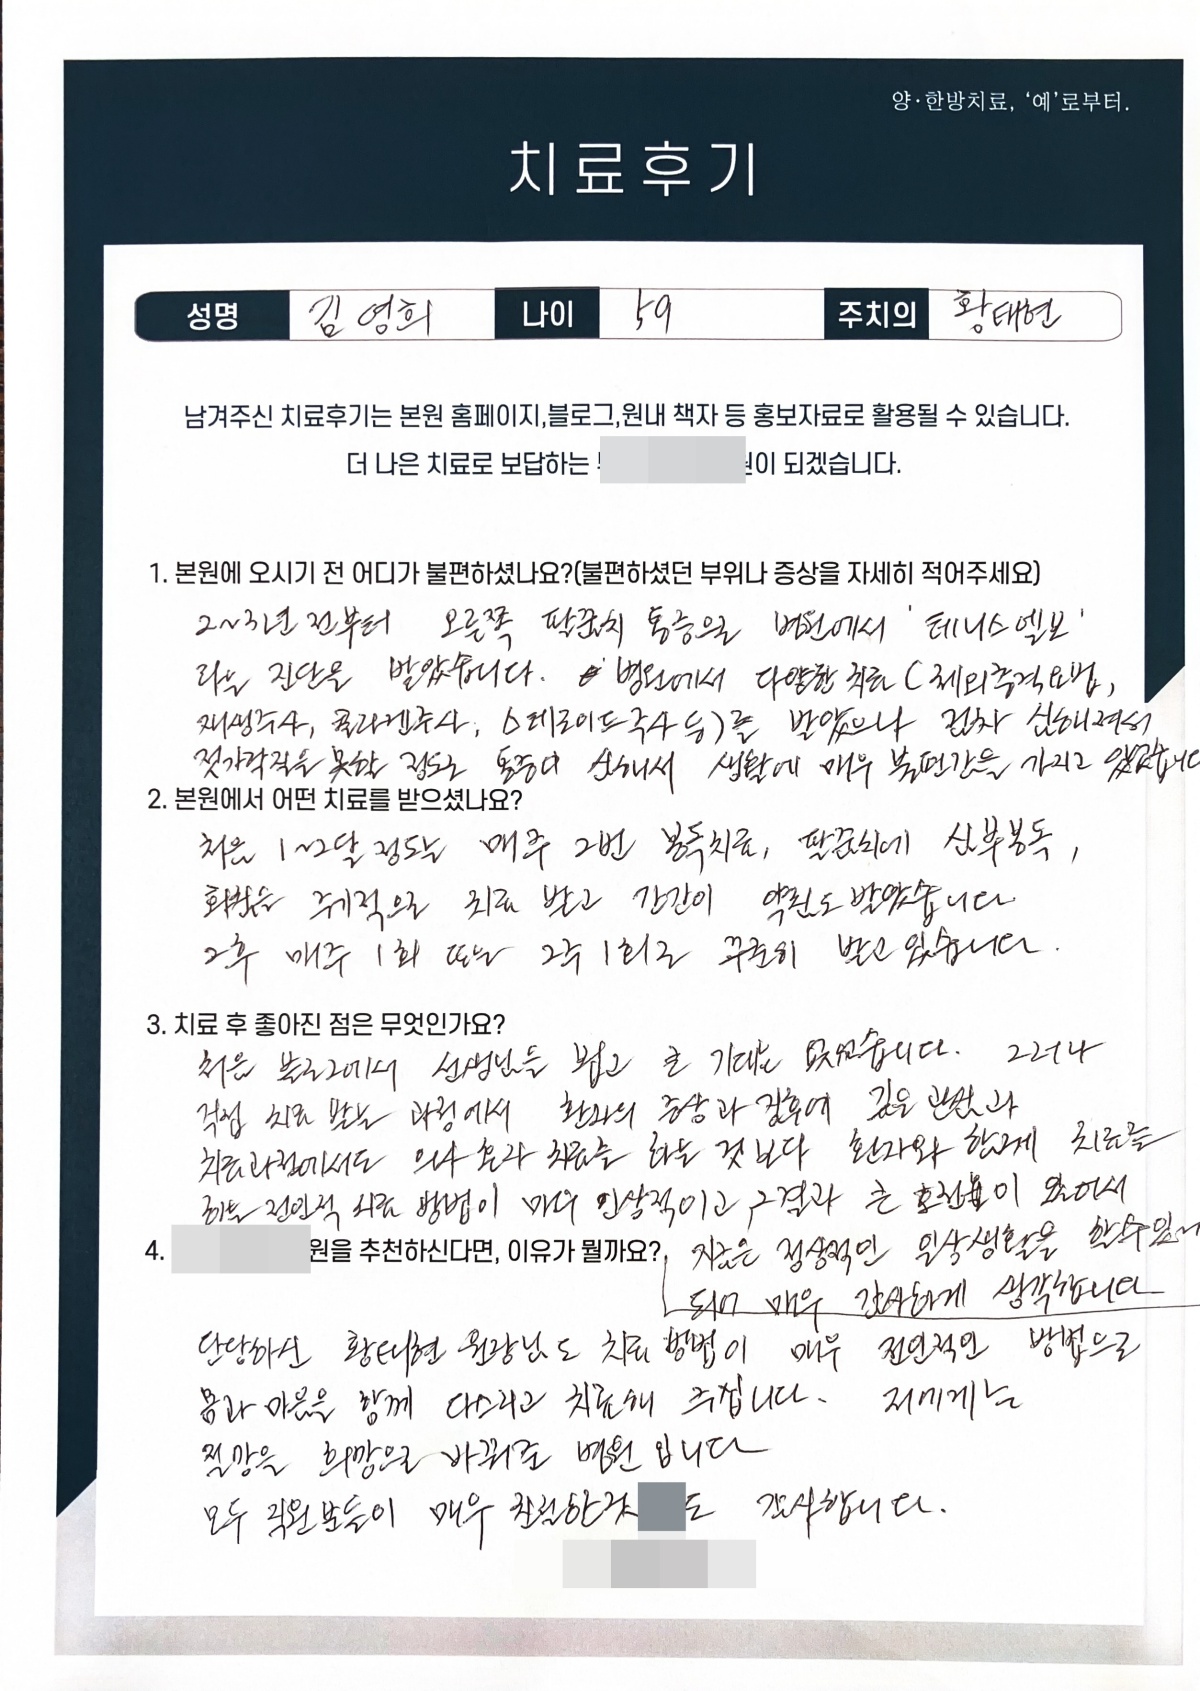 양·한방치료, ‘예’로부터.
치료후기
성명 김영희 나이 59 주치의 황태현
남겨주신 치료후기는 본원 홈페이지,블로그,원내 책자 등 홍보자료로 활용될 수 있습니다.
더 나은 치료로 보답하는 원이 되겠습니다.
1. 본원에 오시기 전 어디가 불편하셨나요?(불편하셨던 부위나 증상을 자세히 적어주세요)
2~3년 전부터 오른쪽 팔꿈치 통증으로 병원에서 '테니스엘보'
라는 진단을 받았습니다. 병원에서 다양한 치료 (체외충격요법,
재생주사, 콜라겐주사, 스테로이드주사 등)를 받았으나 점차 심해져서
젓가락질을 못할 정도로 통증이 심해서 생활에 매우 불편감을 가지고 있었습니다
2. 본원에서 어떤 치료를 받으셨나요?
처음 1~2달 정도는 매주 2번 봉독치료, 팔꿈치에 심부봉독,
화침을 주기적으로 치료 받고 간간이 약침도 받았습니다
그후 매주 1회 또는 2주 1회로 꾸준히 받고 있습니다.
3. 치료 후 좋아진 점은 무엇인가요?
처음 블로그에서 선생님들 뵙고 큰 기대는 없었습니다. 그러나
직접 치료 받는 과정에서 환자의 증상과 징후에 깊은 관찰과
치료과정에서도 의사 혼자 치료를 하는 것보다 환자와 함께 치료를
하는 전인적 치료 방법이 매우 인상적이고 그결과 큰 호전이 있어서
지금은 정상적인 일상생활을 할수있게
되어 매우 감사하게 생각합니다
4. 원을 추천하신다면, 이유가 뭘까요?
담당하신 황태현 원장님도 치료 방법이 매우 전인적인 방법으로
몸과 마음을 함께 다스리고 치료해 주십니다. 저에게는
절망을 희망으로 바꿔준 병원 입니다
모두 직원분들이 매우 친절한것 도 감사합니다.